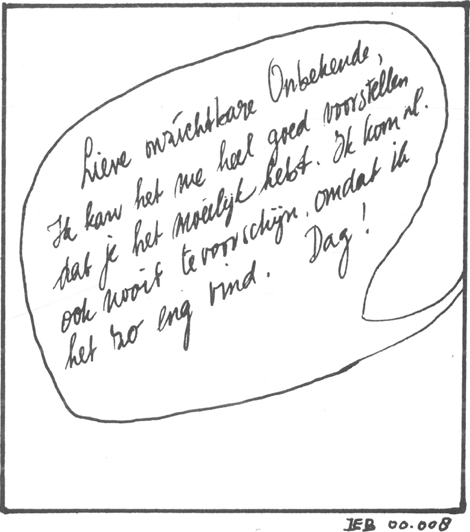 Lieve onzichtbare Onbekende,
Ik kan het me heel goed voorstellen
dat je het moeilijk hebt. Ik kom nl.
ook nooit tevoorschijn, omdat ik
het zo eng vind. Dag!
JEB 00.008